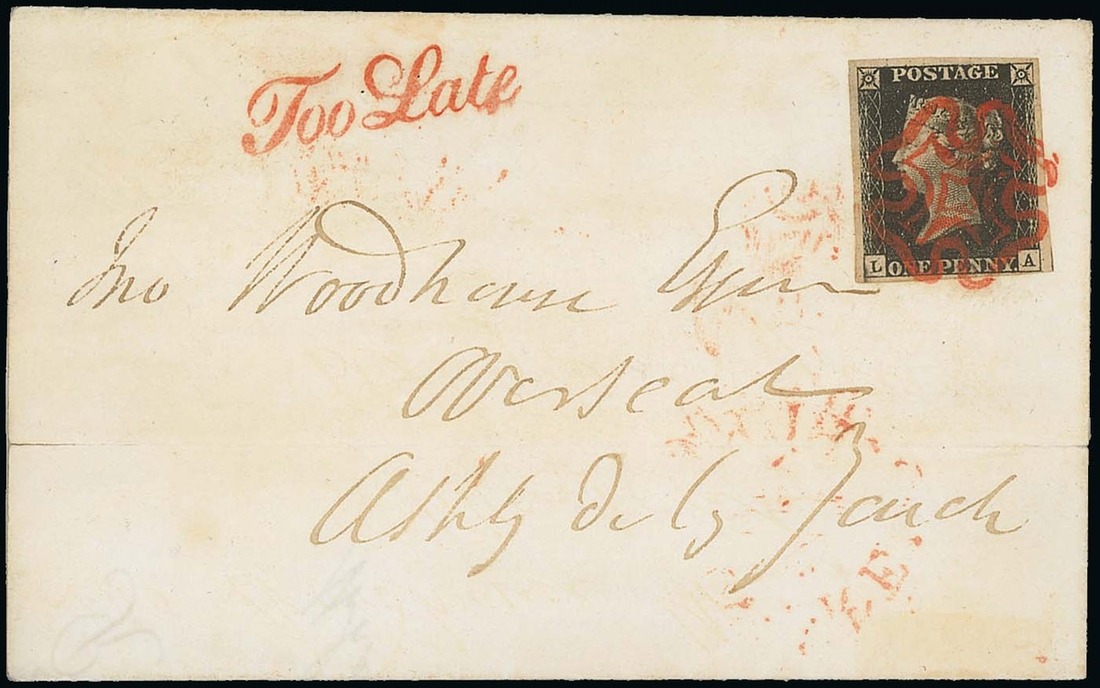 Too Late
POSTAGE
L ONE PENNY A
Jno Woodhouse Esqre
Overseal
Ashby De La Zouch